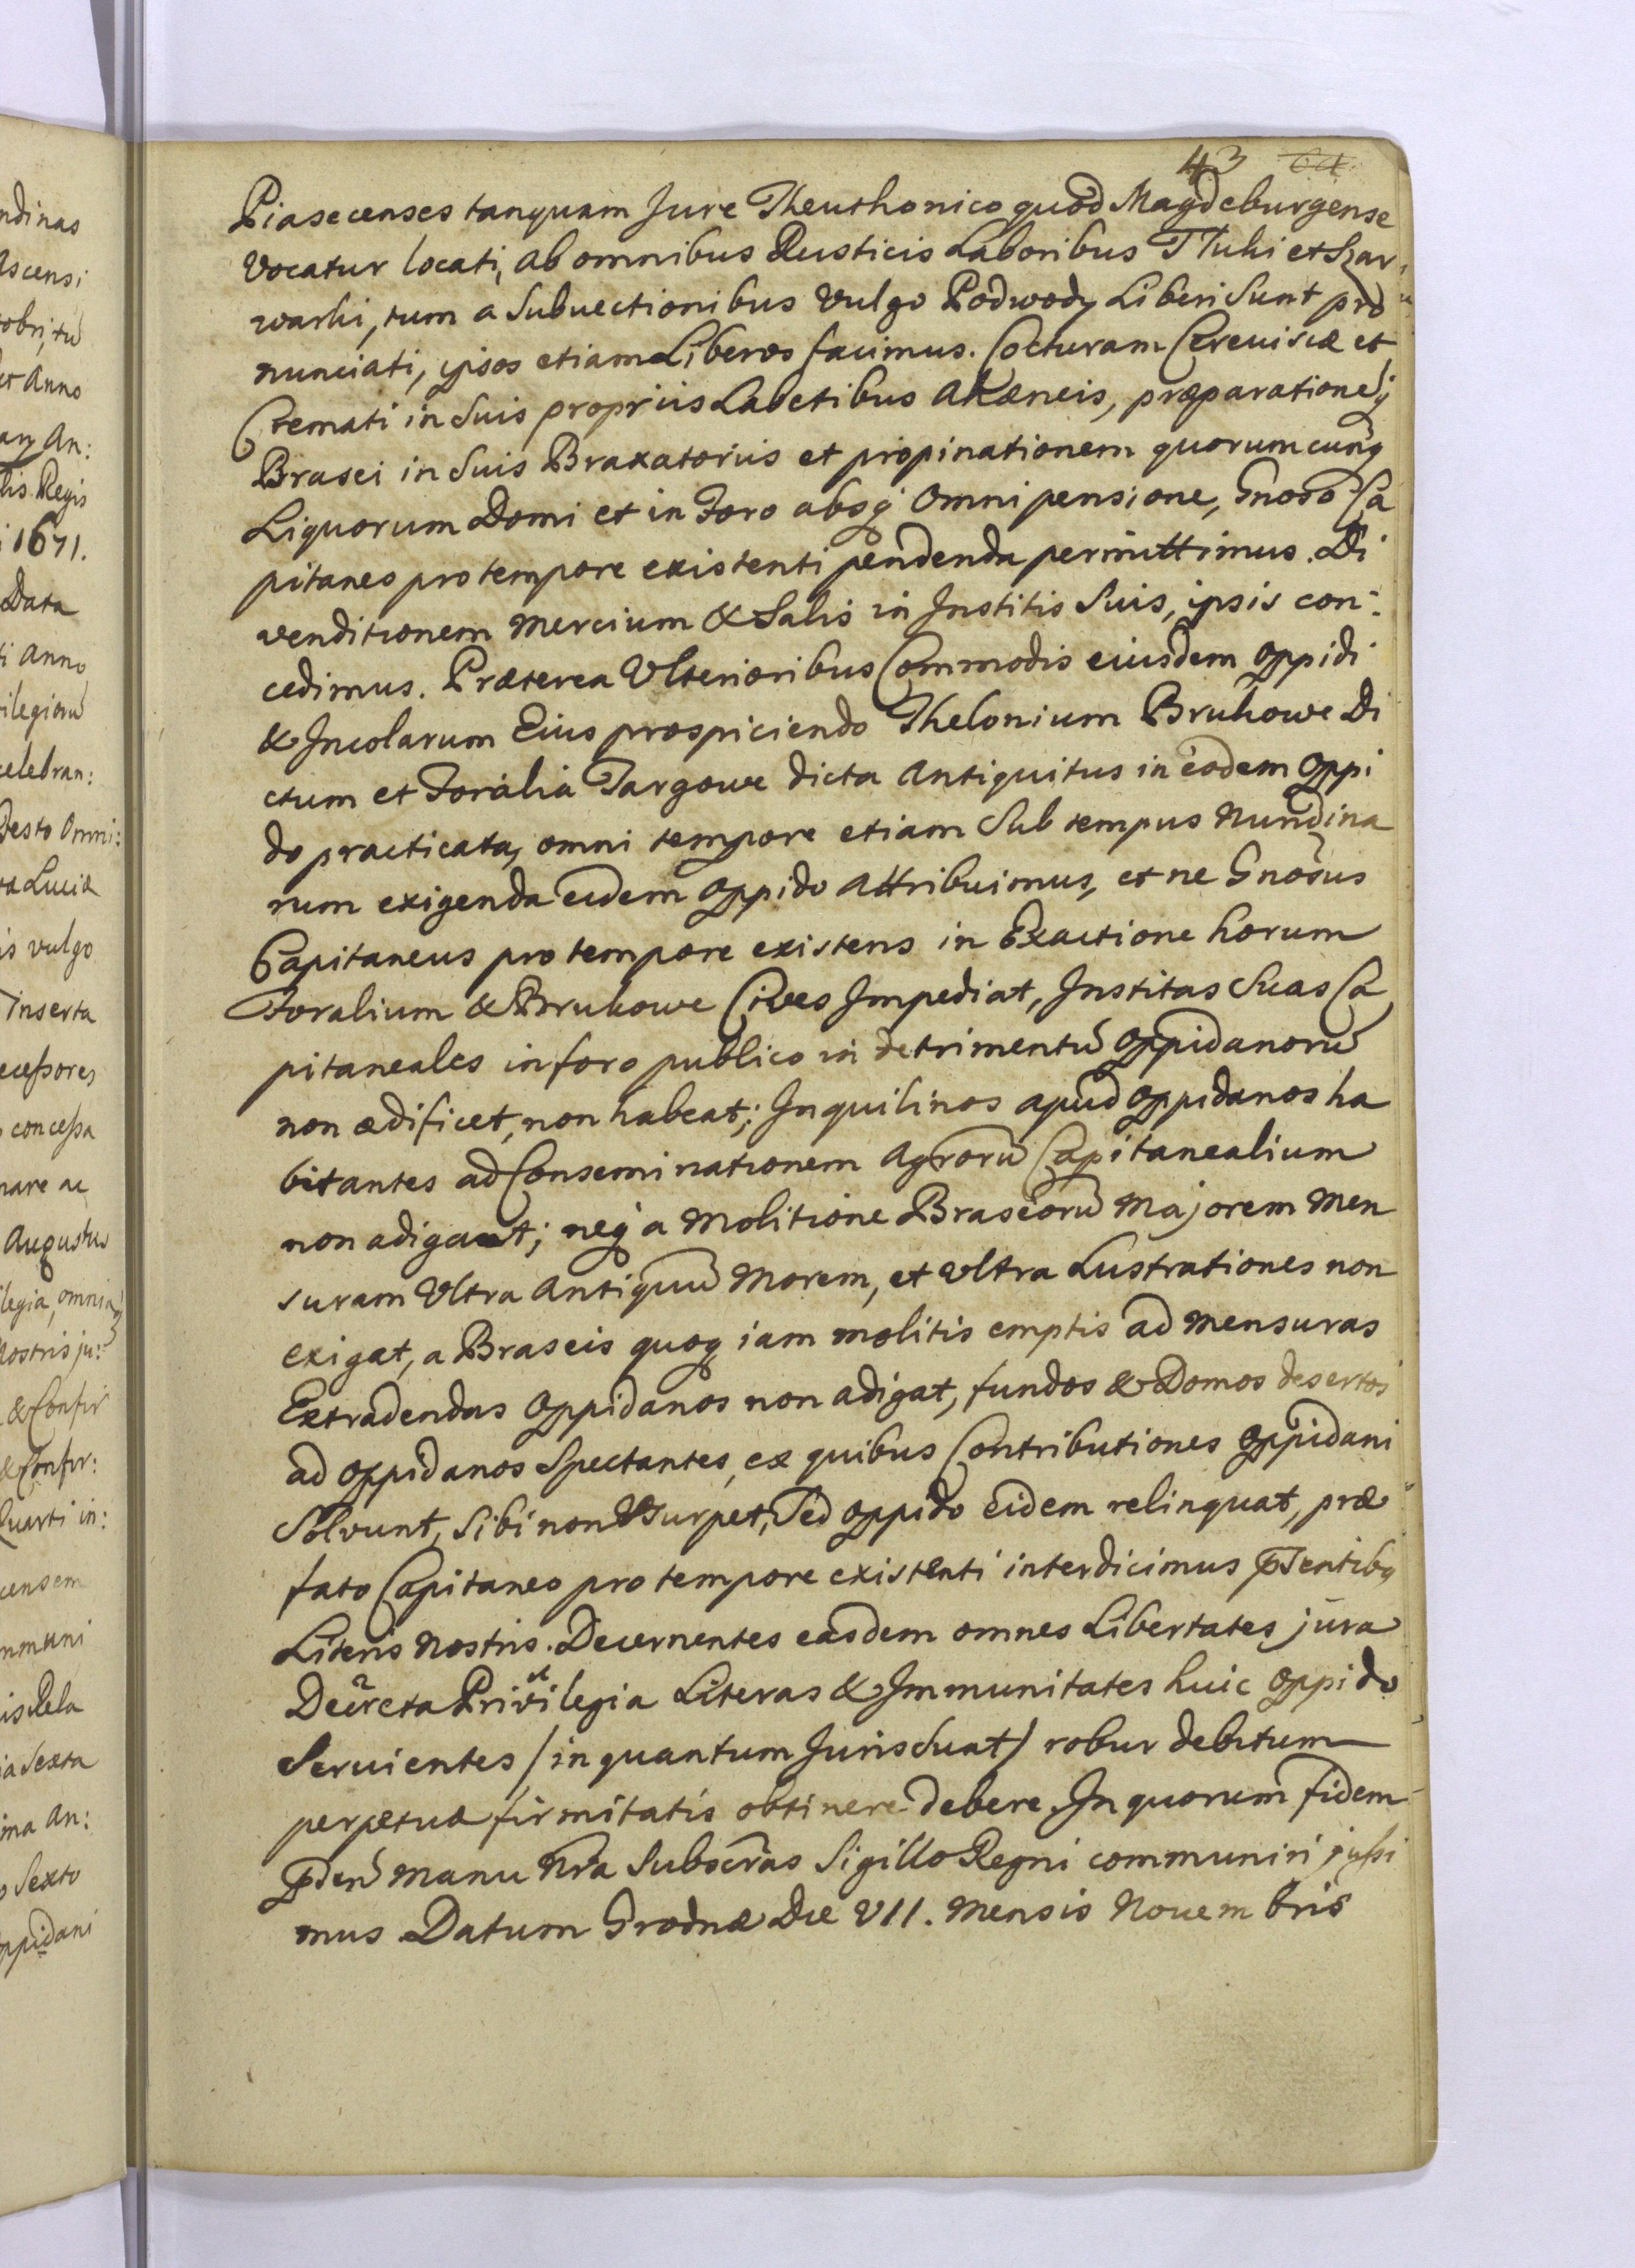 43
Piasecenses tanquam Jure Theuthonico quod Magdeburgense
Vocatur locati, ab omnibus Rusticis Laboribus Tłuki et Szar
warki, tum a Subuectionibus Vulgo Podwody Liberi Sunt pro
nunciati, ipsos etiam Liberos facimus. Cocturam Cereuisiæ et
Cremati in Suis proprijs Labetibus Ahæneis, præparationeq
Brasei in Suis Braxatorijs et propinationem quorumcunq
Liquorum Domi et in Foro absq Omni pensione, Gnoso Ca
pitaneo pro tempore existenti pendenda permittimus. Di
venditionem Mercium & Salis in Institis Suis, ipsis con:
cedimus. Præterea Ulterioribus Commodis eiusdem Oppidi
& Incolarum Eius prospiciendo Thelonium Brukowe Di
ctum et Foralia Targowe dicta Antiquitus in eodem Oppi
do practicata, omni tempore etiam Sub tempus Nundina
rum exigenda eidem Oppido Attribuimus, et ne Gnosus
Capitaneus pro tempore existens in Exactione horum
Foralium & Brukowe Cives Impediat, Institas Suas Ca
pitaneales in foro publico in detrimentū Oppidanorū
non ædificet, non habeat; Inquilinos apud Oppidanos ha
bitantes ad Conseminationem Agrorū Capitanealium
non adigat; neq a Molitione Braseorū Majorem Men
suram Ultra Antiquū Morem, et Ultra Lustrationes non
exigat, a Braseis quoq iam molitis emptis ad Mensuras
Extradendas Oppidanos non adigat, fundos & Domos desertos
ad Oppidanos Spectantes, ex quibus Contributiones Oppidani
Solvunt, Sibi non Usurpet, Sed Oppido eidem relinquat, præ
fato Capitaneo pro tempore existenti interdicimus pSentibq
Literis Nostris. Decernentes easdem omnes Libertates jura
Decreta Privilegia Literas & Immunitates huic Oppido
Seruientes / in quantum Juris Sunt / robur debitum
perpetuæ firmitatis obtinere debere. In quorum fidem
pSen Manu Nra Subscras Sigillo Regni communiri jussi
mus Datum Grodnæ Die VII. Mensis Nouembris